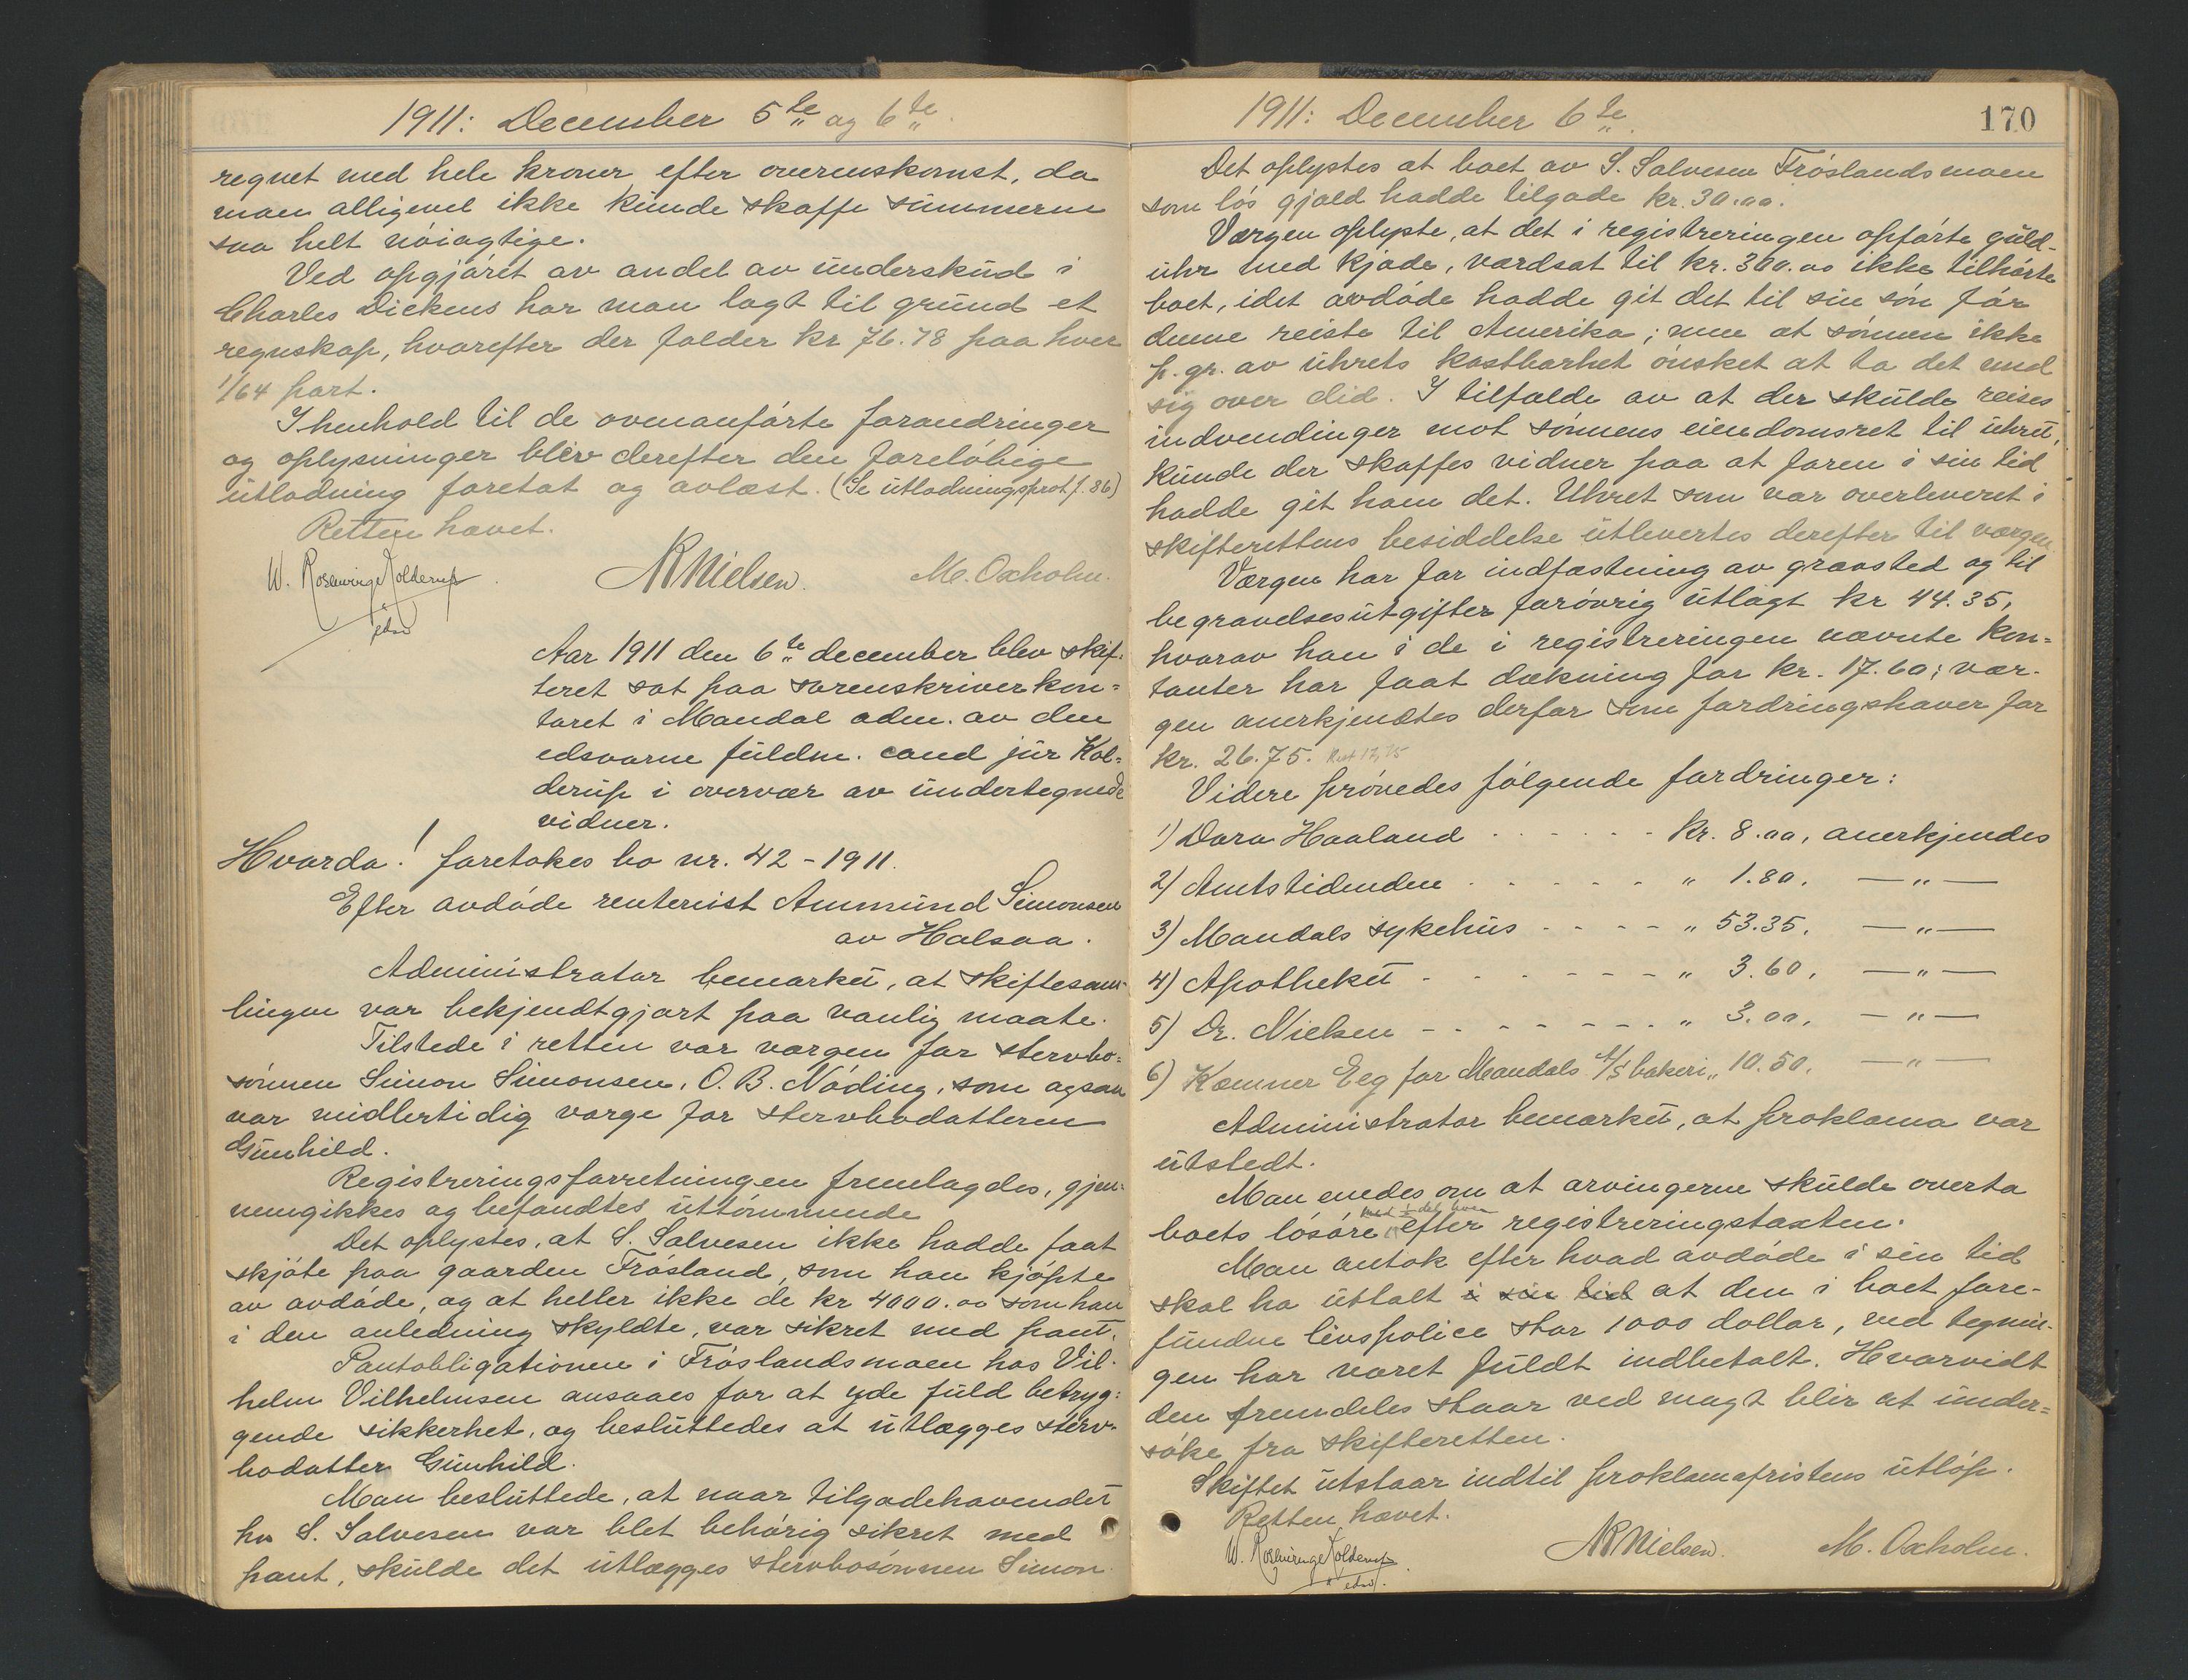 1911: December 5te og 6te.
regnet med hele kroner efter overenskomst, da
man alligevel ikke kunde skaffe summerne
saa helt nöiagtige.
Ved opgjöret av andel av underskud i
Charles Dickens har man lagt til grund et
regnskap, hvorefter der falder kr 76.78 paa hver
1/64 part.
I henhold til de ovenanförte forandringer
og oplysninger blev derefter den foreløbige
utlodning foretat og avlæst. (Se utlodningsprot f. 86)
Retten hævet.
W. Rosenvinge Kolderup
edsv
NRNielsen.
M. Oxholm.
Aar 1911 den 6te december blev skif=
teret sat paa sorenskriverkon=
toret i Mandal adm. av den
edsvorne fuldm. cand jur Kol=
derup i overvær av undertegnede
vidner.
Hvorda! foretokes bo nr. 42 - 1911.
Efter avdöde rentenist Ammund Simonsen
av Halsaa.
Administrator bemærket, at skiftesam-
lingen var bekjendtgjort paa vanlig maate.
Tilstede i retten var værgen for stervbo=
sönnen Simon Simonsen, O. B. Nöding, som ogsaa
var midlertidig værge for stervbodatteren
Gunhild.
Registreringsforretningen fremlagdes, gjen=
nemgikkes og befandtes uttömmende
Det oplystes, at S. Salvesen ikke hadde faat
skjöte paa gaarden Frösland, som han kjöpte
av avdöde, og at heller ikke de kr 4000.00 som han
i den anledning skyldte, var sikret med pant.
Pantobligationen i Fröslandsmoen hos Vil-
helm Vilhelmsen ansaaes for at yde fuld betryg=
gende sikkerhet, og besluttedes at utlægges sterv-
bodatter Gunhild.
Man besluttede, at naar tilgodehavendet
hos S. Salvesen var blet behörig sikret med
pant, skulde det utlægges stervbosönnen Simon.
1911: December 6te.
170
Det oplystes at boet av S. Salvesen Fröslandsmoen
som lös gjæld hadde tilgode kr. 30.00.
Værgen oplyste, at det i registreringen opförte guld-
uhr med kjæde, værdsat til kr. 300.00 ikke tilhörte
boet, idet avdöde hadde git det til sin sön för
denne reiste til Amerika; men at sönnen ikke
p. gr. av uhrets kostbarhet önsket at ta det med
sig over did. I tilfælde av at der skulde reises
indvendinger mot sönnens eiendomsret til uhret,
kunde der skaffes vidner paa at faren i sin tid
hadde git ham det. Uhret som var overleveret i
skifterettens besiddelse utlevertes derefter til værgen.
Værgen har for indfæstning av gravsted og til
begravelsesutgifter forövrig utlagt kr 44.35,
hvorav han i de i registreringen nævnte kon=
tanter har faat dækning for kr. 17.60; vær-
gen anerkjendtes derfor som fordringshaver for
kr. 26.75.
Videre prövedes fölgende fordringer:
1) Dora Haaland - - - - - - kr. 8.00, anerkjendes
2) Amtstidenden - - - - - - " 1.80, — " —
3) Mandals sykehus - - - - " 53.35, — " —
4) Apotheket - - - - - - - " 3.60, — " —
5) Dr. Nielsen - - - - - - - " 3.00, — " —
6) Kæmner Eeg for Mandals A/S bakeri " 10.50, — " —
Administrator bemærket, at proklama var
utstedt.
Man enedes om at arvingerne skulde overta
med 1/2 del hver
boets lösöre efter registreringstaxten.
Man antok efter hvad avdöde i sin tid
skal ha uttalt i sin tid at den i boet fore-
fundne livspolice stor 1000 dollar, ved tegnin-
gen har været fuldt indbetalt. Hvorvidt
den fremdeles staar ved magt blir at under=
söke fra skifteretten.
Skiftet utstaar indtil proklamafristens utlöp.
Retten hævet.
W. Rosenvinge Kolderup
edsv.
NRNielsen.
M. Oxholm.